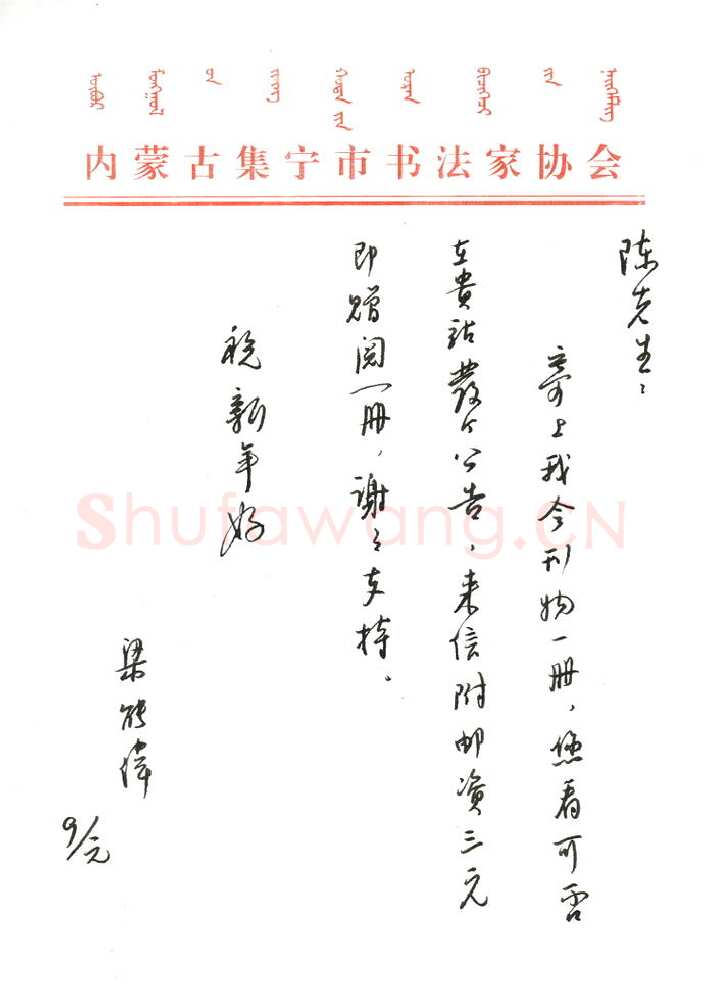 内蒙古集宁市书法家协会
陈先生：
寄上我会刊物一册，您看可否
在貴站發个公告，来信附邮资三元
即赠阅一册，谢々支持。
祝新年好
梁能偉
9/元
Shufawang.CN